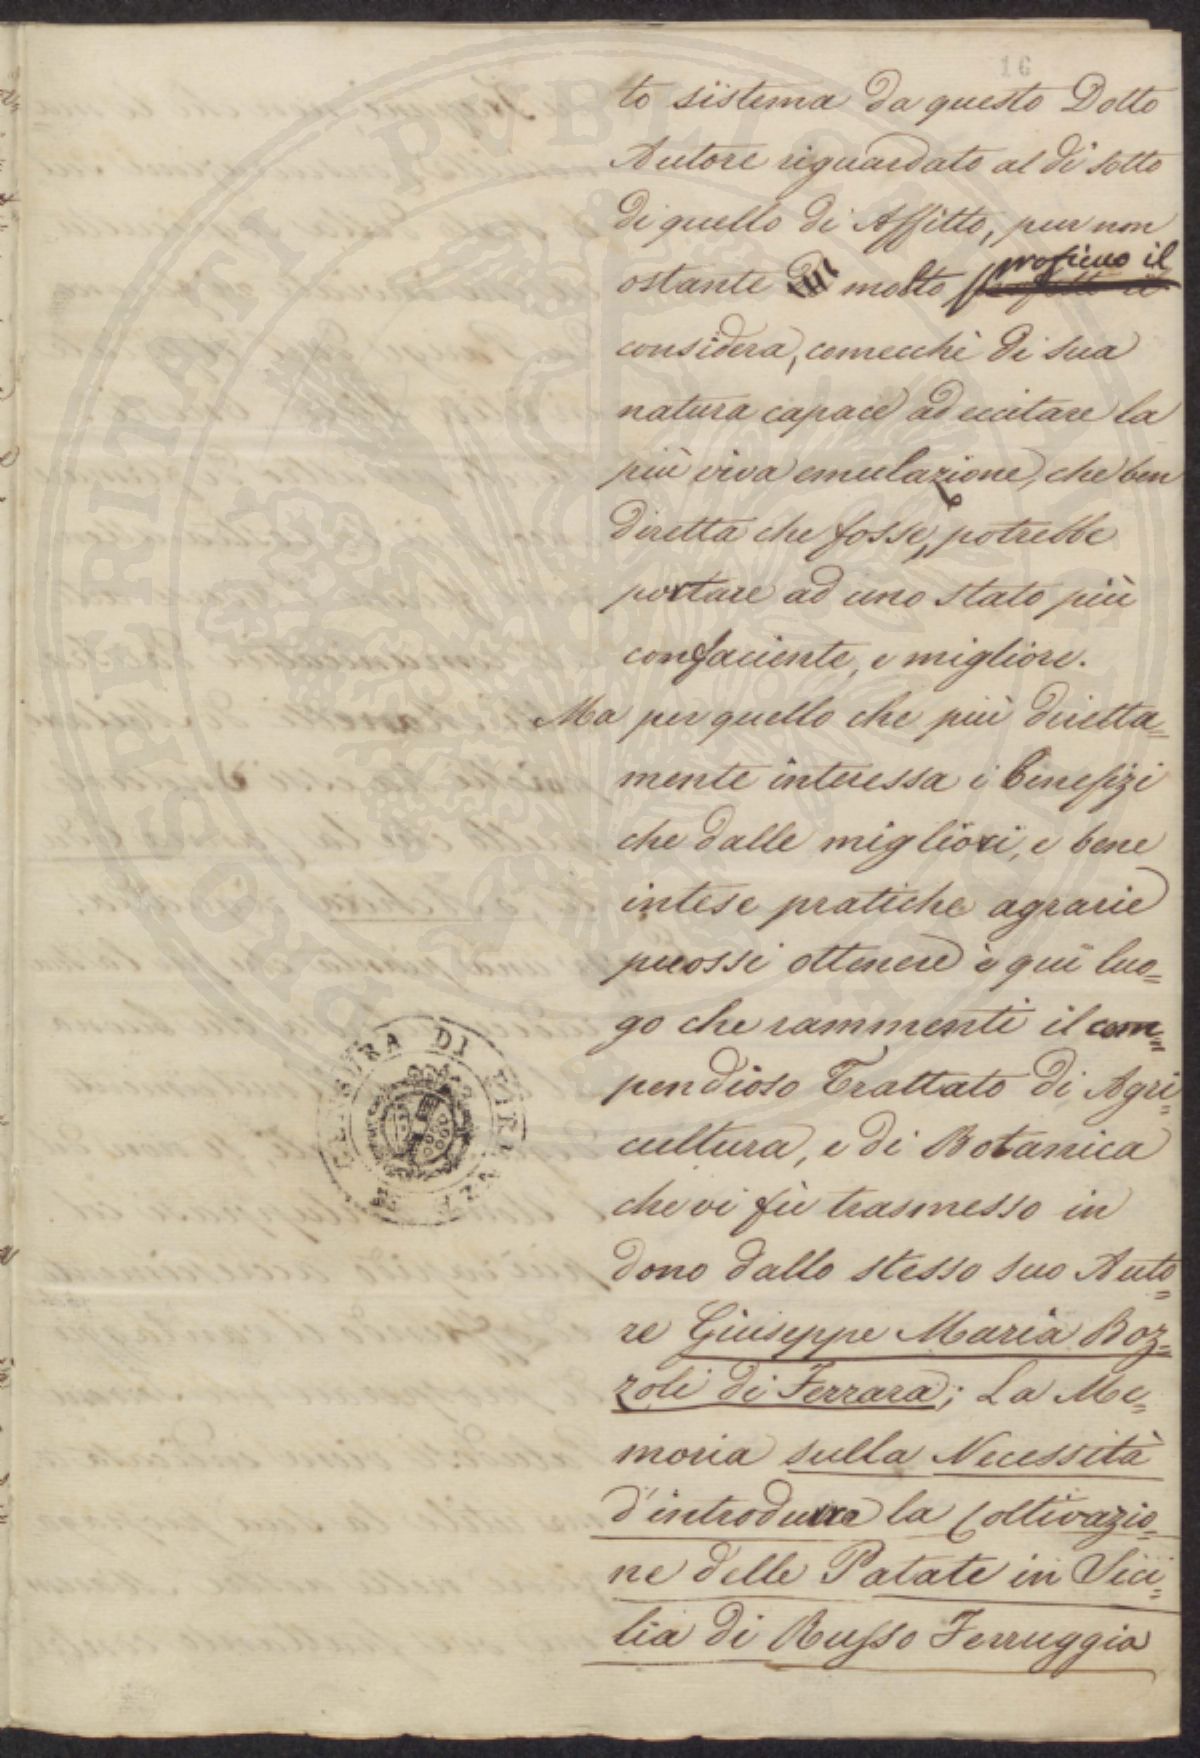 16
to sistema da questo Dotto
Autore riguardato al di sotto
di quello di Affitto, pur non
ostante molto proficuo il
considera, comecchè di sua
natura capace ad eccitare la
più viva emulazione, che ben
diretta che fosse, potrebbe
portare ad uno stato più
confaciente, e migliore.
Ma per quello che più diretta=
mente interessa i benefizi
che dalle migliori, e bene
intese pratiche agrarie
puossi ottenere è quì luo=
go che rammenti il com=
pendioso Trattato di Agri=
cultura, e di Botanica
che vi fù trasmesso in
dono dallo stesso suo Auto=
re Giuseppe Maria Boz=
zoli di Ferrara; La Me=
moria sulla Necessità
d'introdurre la Coltivazio=
ne delle Patate in Sici=
lia di Russo Ferruggia
PROSPERITATI PUBLICAE
DI